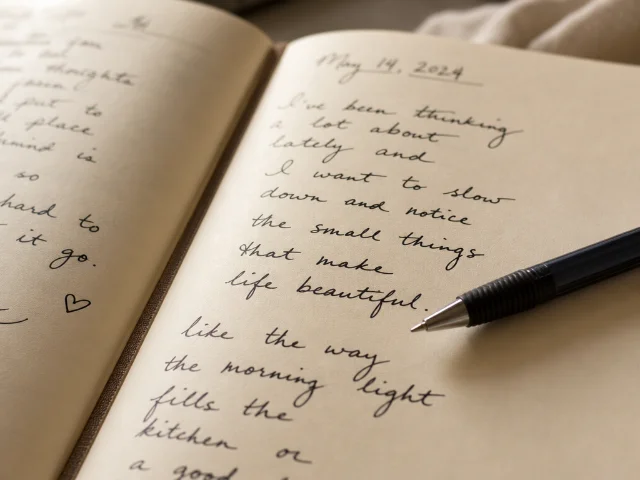 you
thoughts
put to
place
mind is
so
hard to
it go.
May 14, 2024
I've been thinking
a lot about
lately and
I want to slow
down and notice
the small things
that make
life beautiful.
like the way
the morning light
fills the
kitchen or
a good